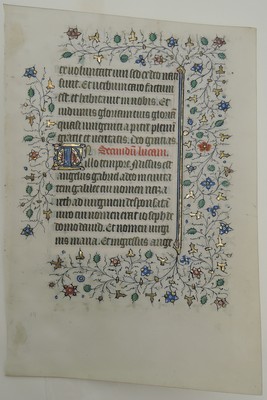 ex voluntate viri sed ex deo nati
sunt. Et verbum caro factum
est. et habitavit in nobis. Et
vidimus gloriam eius gloriam
quasi unigeniti a patre plenum
gratie et veritatis. Deo gratias.
Secundum lucam.
In illo tempore. Missus est
angelus gabriel a deo in civita
tem galilee cui nomen naza
reth ad virginem desponsatam
viro cui nomen erat ioseph de
domo david. Et nomen virgi
nis maria. Et ingressus ange